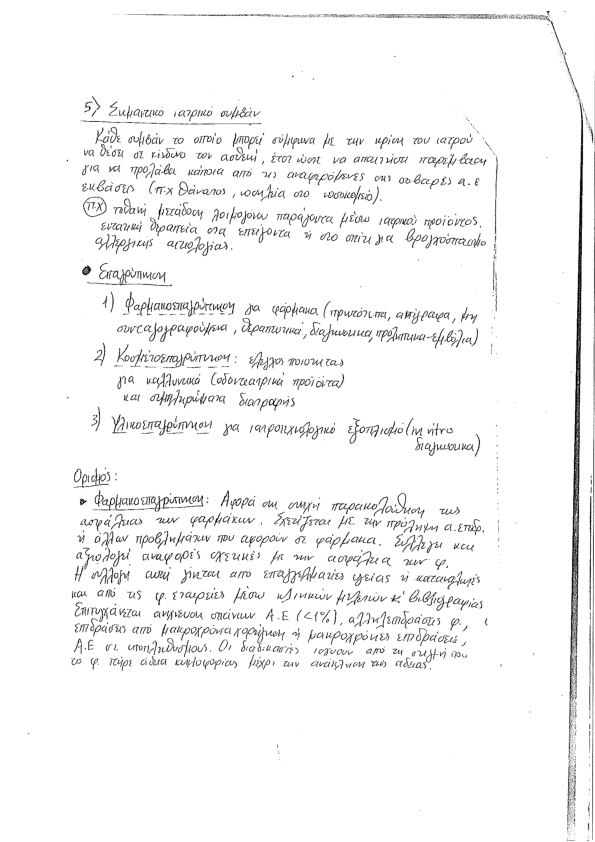 5) Σημαντικό ιατρικό συμβάν
Κάθε συμβάν το οποίο μπορεί σύμφωνα με την κρίση του ιατρού
να θέσει σε κίνδυνο τον ασθενή, έτσι ώστε να απαιτήσει παρέμβαση
για να προλάβει κάποια από τις αναφερόμενες στις σοβαρές α.ε
εκβάσεις (π.χ θάνατος, νοσηλεία στο νοσοκομείο).
π.χ πιθανή μετάδοση λοιμογόνου παράγοντα μέσω ιατρικού προϊόντος.
εντατική θεραπεία στα επείγοντα ή στο σπίτι για βρογχόσπασμο
αλλεργικής αιτιολογίας.
● Επαγρύπνηση
1) Φαρμακοεπαγρύπνηση για φάρμακα (πρωτότυπα, αντίγραφα, μη
συνταγογραφούμενα, θεραπευτικά, διαγνωστικά, προληπτικά-εμβόλια)
2) Κοσμετοεπαγρύπνηση: έλεγχος ποιότητας
για καλλυντικά (οδοντιατρικά προϊόντα)
και συμπληρώματα διατροφής
3) Υλικοεπαγρύπνηση για ιατροτεχνολογικό εξοπλισμό (in vitro
διαγνωστικά)
Ορισμός:
► Φαρμακοεπαγρύπνηση: Αφορά στη συνεχή παρακολούθηση της
ασφάλειας των φαρμάκων. Σχετίζεται με την πρόληψη α. επιδρ.
ή άλλων προβλημάτων που αφορούν σε φάρμακα. Συλλέγει και
αξιολογεί αναφορές σχετικές με την ασφάλεια των φ.
Η συλλογή αυτή γίνεται από επαγγελματίες υγείας ή καταναλωτές
και από τις φ. εταιρείες μέσω κλινικών μελετών κ' βιβλιογραφίας
Επιτυγχάνεται ανίχνευση σπάνιων Α.Ε (<1%), αλληλεπιδράσεις φ.,
επιδράσεις από μακροχρόνια χορήγηση ή μακροχρόνιες επιδράσεις,
Α.Ε σε υποπληθυσμούς. Οι διαδικασίες ισχύουν από τη στιγμή που
το φ. πήρε άδεια κυκλοφορίας μέχρι την ανάκληση της άδειας.